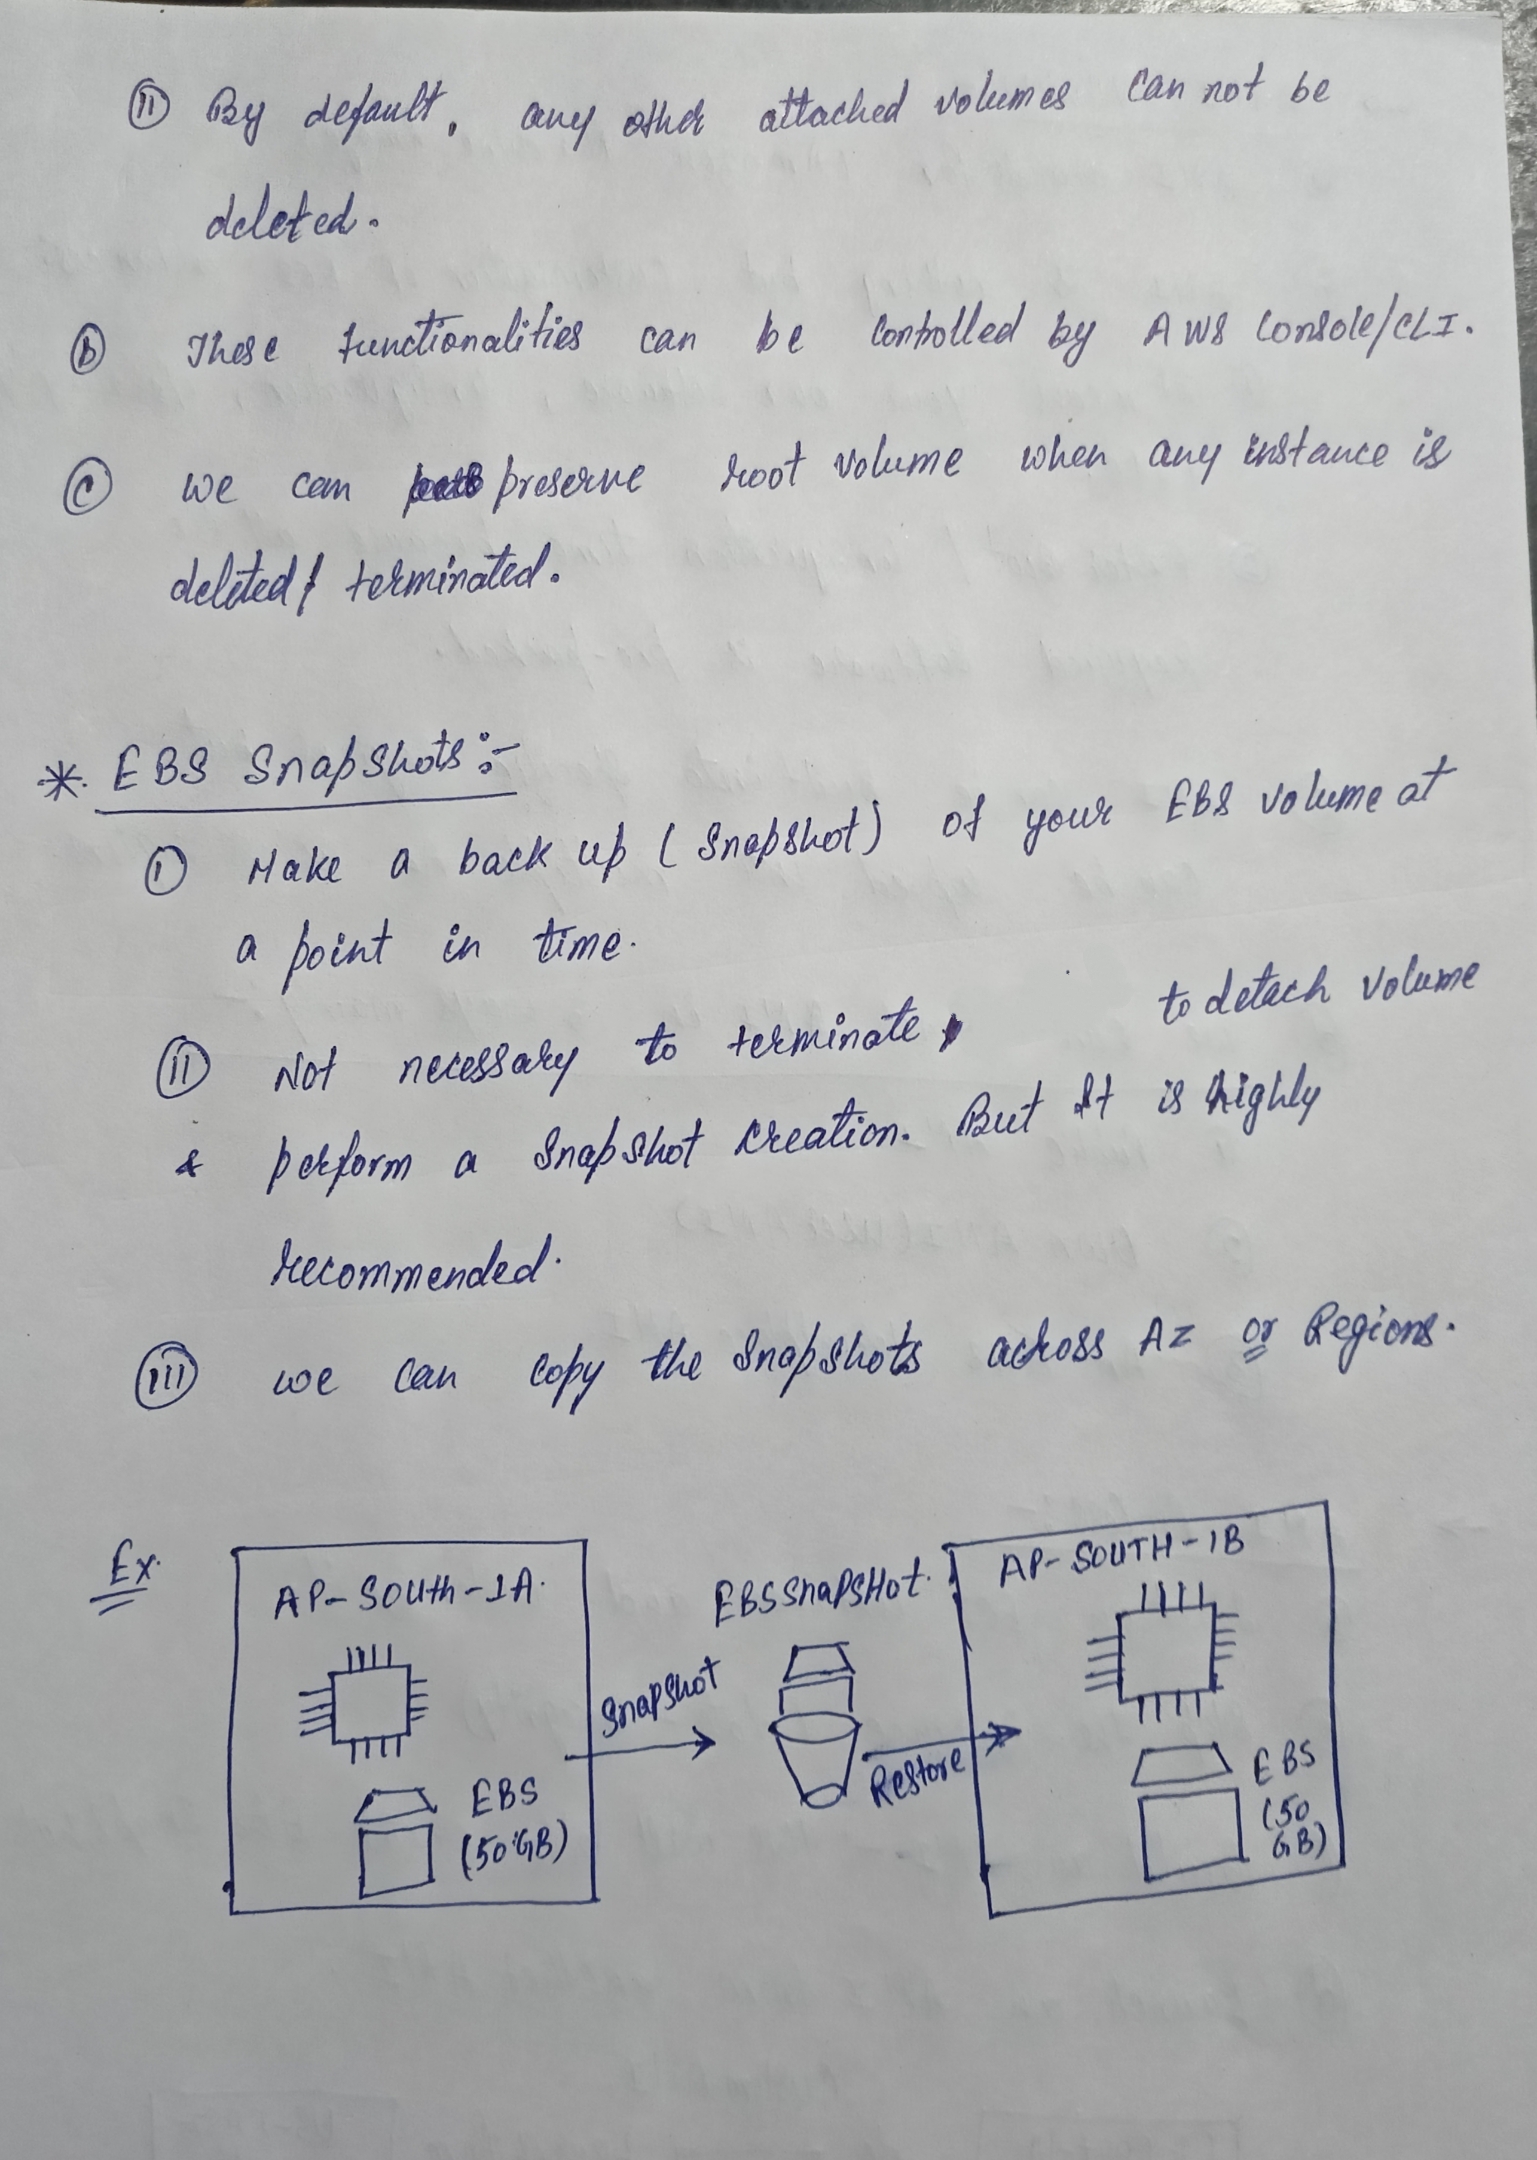 (ii) By default, any other attached volumes can not be
deleted.
(b) These functionalities can be controlled by AWS Console/CLI.
(c) we can preserve root volume when any instance is
deleted / terminated.
*. EBS Snapshots:-
(i) Make a back up (Snapshot) of your EBS volume at
a point in time.
(ii) Not necessary to terminate, to detach volume
& perform a Snapshot creation. But It is highly
recommended.
(iii) we can copy the Snapshots across AZ or Regions.
Ex.
AP-South-1A.
EBS
(50 GB)
Snapshot
EBS SnapSHot.
Restore
AP-SOUTH-1B
EBS
(50
GB)